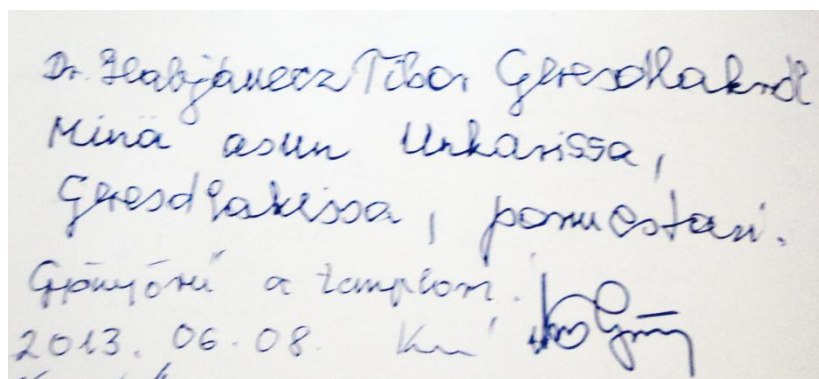 Dr. Habjánecz Tibor Geresdlakról
Minä asun Unkarissa,
Geresdlakissa,
Gyönyörű a templom!
2013. 06. 08.